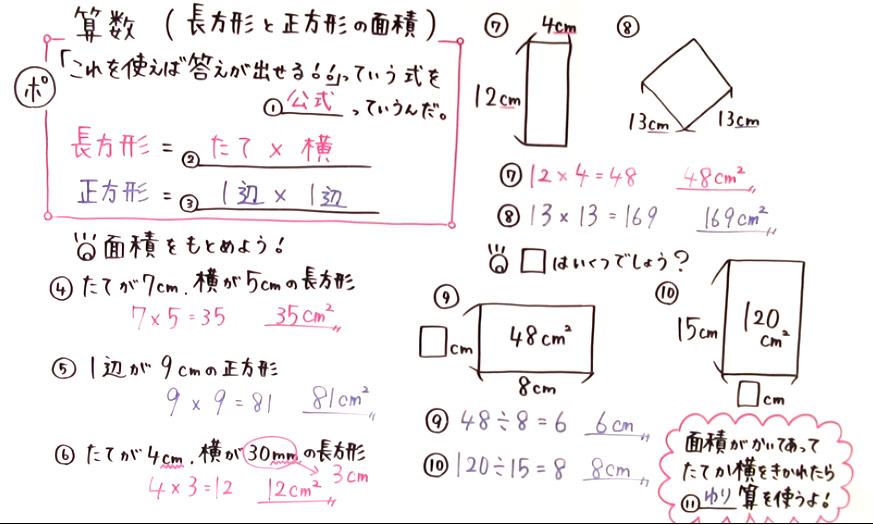 算数 (長方形と正方形の面積)
ポ
「これを使えば答えが出せる!!」っていう式を
① 公式 っていうんだ。
長方形 = ② たて × 横
正方形 = ③ 1辺 × 1辺
面積をもとめよう!
④ たてが7cm、横が5cmの長方形
7×5=35 35cm²
⑤ 1辺が9cmの正方形
9×9=81 81cm²
⑥ たてが4cm、横が30mmの長方形
3cm
4×3=12 12cm²
⑦ 4cm
12cm
⑧
13cm 13cm
⑦ 12×4=48 48cm²
⑧ 13×13=169 169cm²
□はいくつでしょう?
⑨
□cm 48cm²
8cm
⑩
15cm 120cm²
□cm
⑨ 48÷8=6 6cm
⑩ 120÷15=8 8cm
面積がかいてあって
たてか横をきかれたら
⑪ わり 算を使うよ!